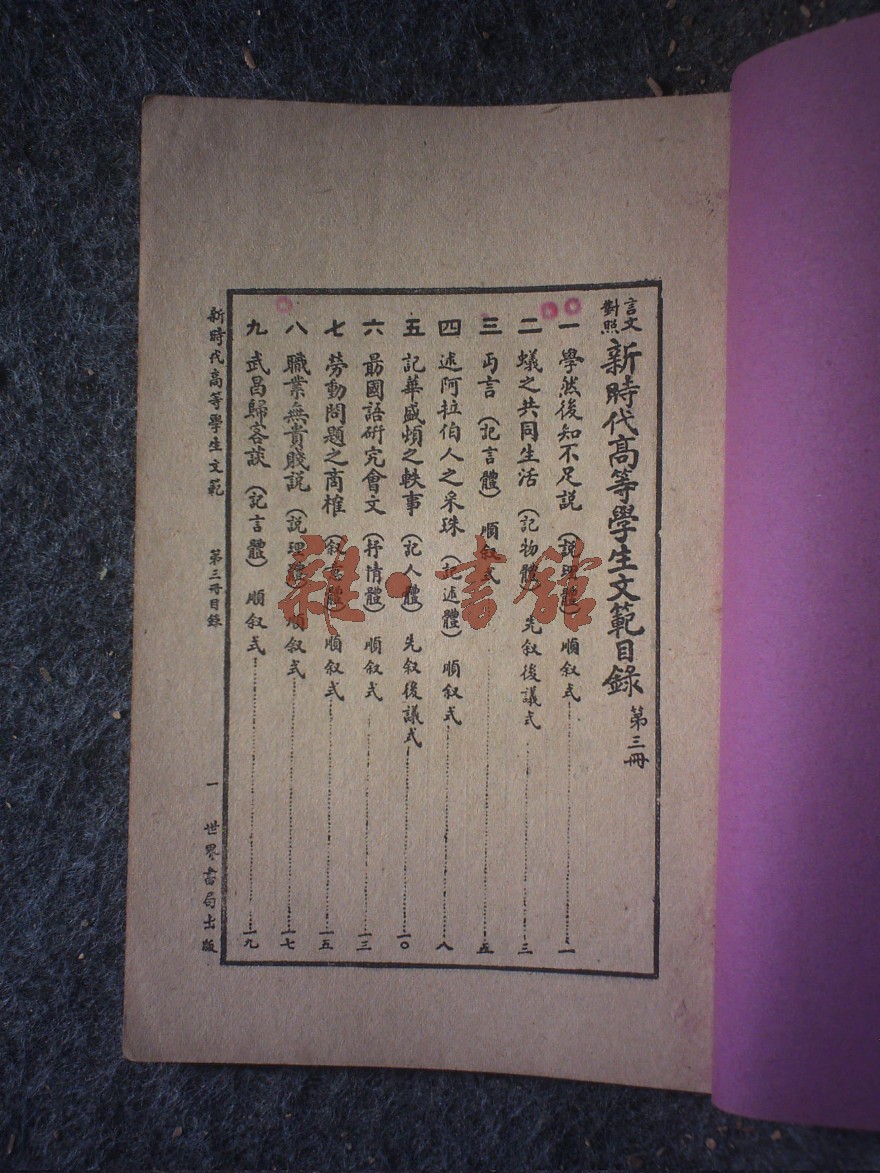 言文對照 新時代高等學生文範目錄 第三冊
一 學然後知不足説 (説理體) 順叙式 一
二 蟻之共同生活 (記物體) 先叙後議式 三
三 丐言 (記言體) 順叙式 五
四 述阿拉伯人之采珠 (記述體) 順叙式 八
五 記華盛頓之軼事 (記人體) 先叙後議式 一〇
六 勗國語研究會文 (抒情體) 順叙式 一三
七 勞動問題之商榷 (叙事體) 順叙式 一五
八 職業無貴賤説 (説理體) 順叙式 一七
九 武昌歸客談 (記言體) 順叙式 一九
新時代高等學生文範 第三冊目錄 一 世界書局出版
雜·書館